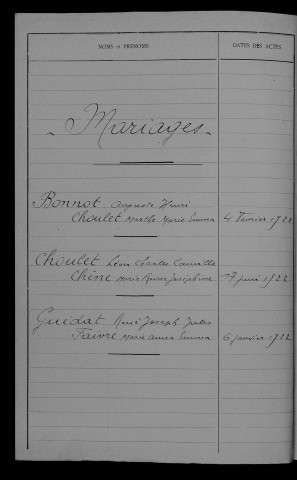 NOMS et PRÉNOMS DATES DES ACTES
- Mariages -
Bonnot Auguste Henri
Choulet Marthe Marie Emma 4 février 1921
Choulet Léon Charles Camille
Chêne Marie Reine Joséphine 17 juin 1922
Guidat René Joseph Jules
Faivre Marie Anna Emma 6 janvier 1922